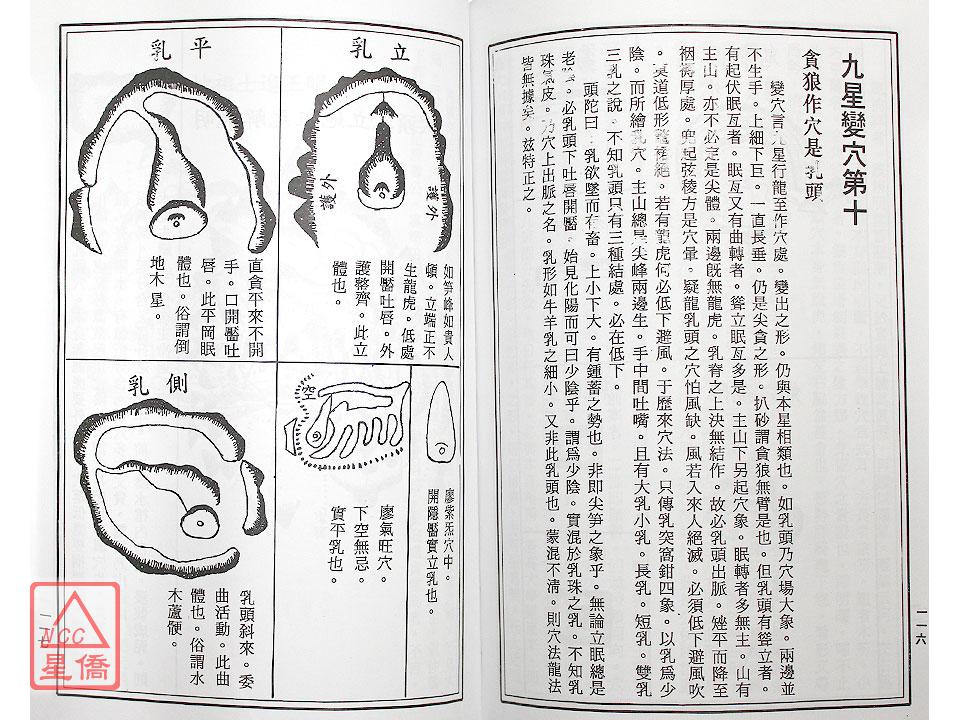 九星變穴第十
貪狼作穴是乳頭
變穴言九星行龍至作穴處。變出之形。仍與本星相類也。如乳頭乃穴場大象。兩邊並
不生手。上細下巨。一直長垂。仍是尖貪之形。扒砂謂貪狼無臂是也。但乳頭有聳立者。
有起伏眠亙者。眠亙又有曲轉者。聳立眠亙多是。主山下另起穴象。眠轉者多無主。山有
主山。亦不必定是尖體。兩邊既無龍虎。乳脊之上決無結作。故必乳頭出脈。矬平而降至
裀褥厚處。兜起弦稜方是穴暈。疑龍乳頭之穴怕風缺。風若入來人絕滅。必須低下避風吹
。莫道低形
絕。若有龍虎何必低下避風。于歷來穴法。只傳乳突窩鉗四象。以乳爲少
陰。而所繪乳穴。主山總是尖峰兩邊生。手中間吐嘴。且有大乳小乳。長乳。短乳。雙乳
三乳之說。不知乳頭只有三種結處。必在低下。
頭陀曰。乳欲墜而有畜。上小下大。有鍾蓄之勢也。非即尖笋之象乎。無論立眠總是
老陰。必乳頭下吐唇開靨。始見化陽而可曰少陰乎。謂爲少陰。實混於乳珠之乳。不知乳
珠氣皮。乃穴上出脈之名。乳形如牛羊乳之細小。又非此乳頭也。蒙混不淸。則穴法龍法
皆無據矣。茲特正之。
一一六
立乳
外護
外護
如笋峰如貴人
頓。立端正不
生龍虎。低處
開靨吐唇。外
護整齊。此立
體也。
平乳
直貪平來不開
手。口開靨吐
唇。此平岡眠
體也。俗謂倒
地木星。
廖紫炁穴中。
開隱靨實立乳也。
空
廖氣旺穴。
下空無忌。
實平乳也。
側乳
乳頭斜來。委
曲活動。此曲
體也。俗謂水
木蘆䕞。
NCC
星僑